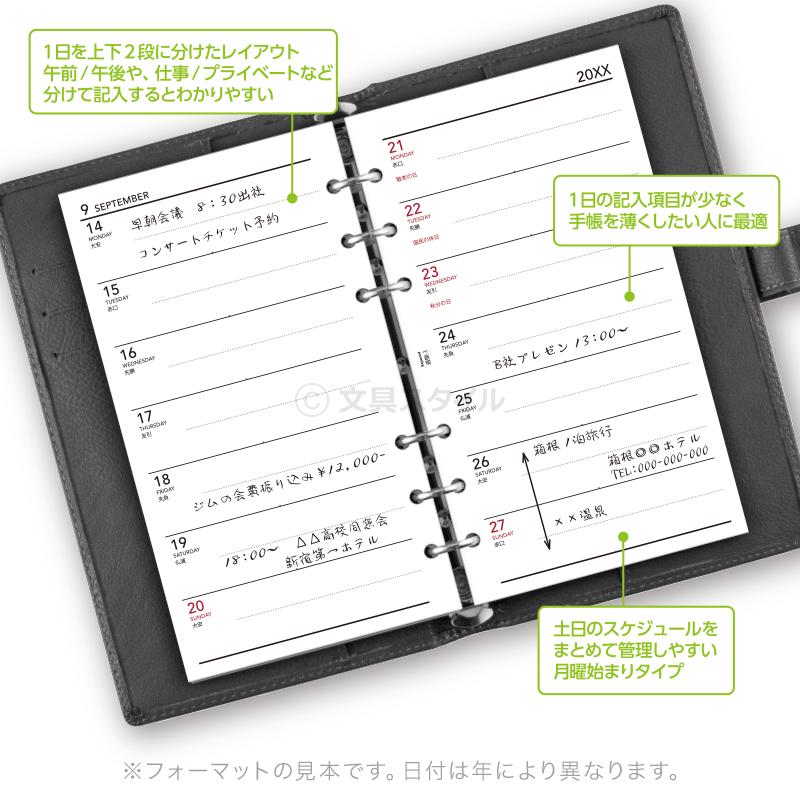 1日を上下２段に分けたレイアウト
午前/午後や、仕事/プライベートなど
分けて記入するとわかりやすい
20XX
9 SEPTEMBER
14
MONDAY
大安
早朝会議 8:30出社
コンサートチケット予約
15
TUESDAY
赤口
16
WEDNESDAY
先勝
17
THURSDAY
友引
18
FRIDAY
先負
ジムの会費振り込み¥12,000-
19
SATURDAY
仏滅
18:00〜 △△高校同窓会
新宿第一ホテル
20
SUNDAY
大安
21
MONDAY
赤口
敬老の日
22
TUESDAY
先勝
国民の休日
23
WEDNESDAY
友引
秋分の日
24
THURSDAY
先負
B社プレゼン 13:00〜
25
FRIDAY
仏滅
26
SATURDAY
大安
箱根 1泊旅行
箱根◎◎ホテル
TEL:000-000-000
27
SUNDAY
赤口
××温泉
1日の記入項目が少なく
手帳を薄くしたい人に最適
© 文具スタイル
土日のスケジュールを
まとめて管理しやすい
月曜始まりタイプ
※フォーマットの見本です。日付は年により異なります。